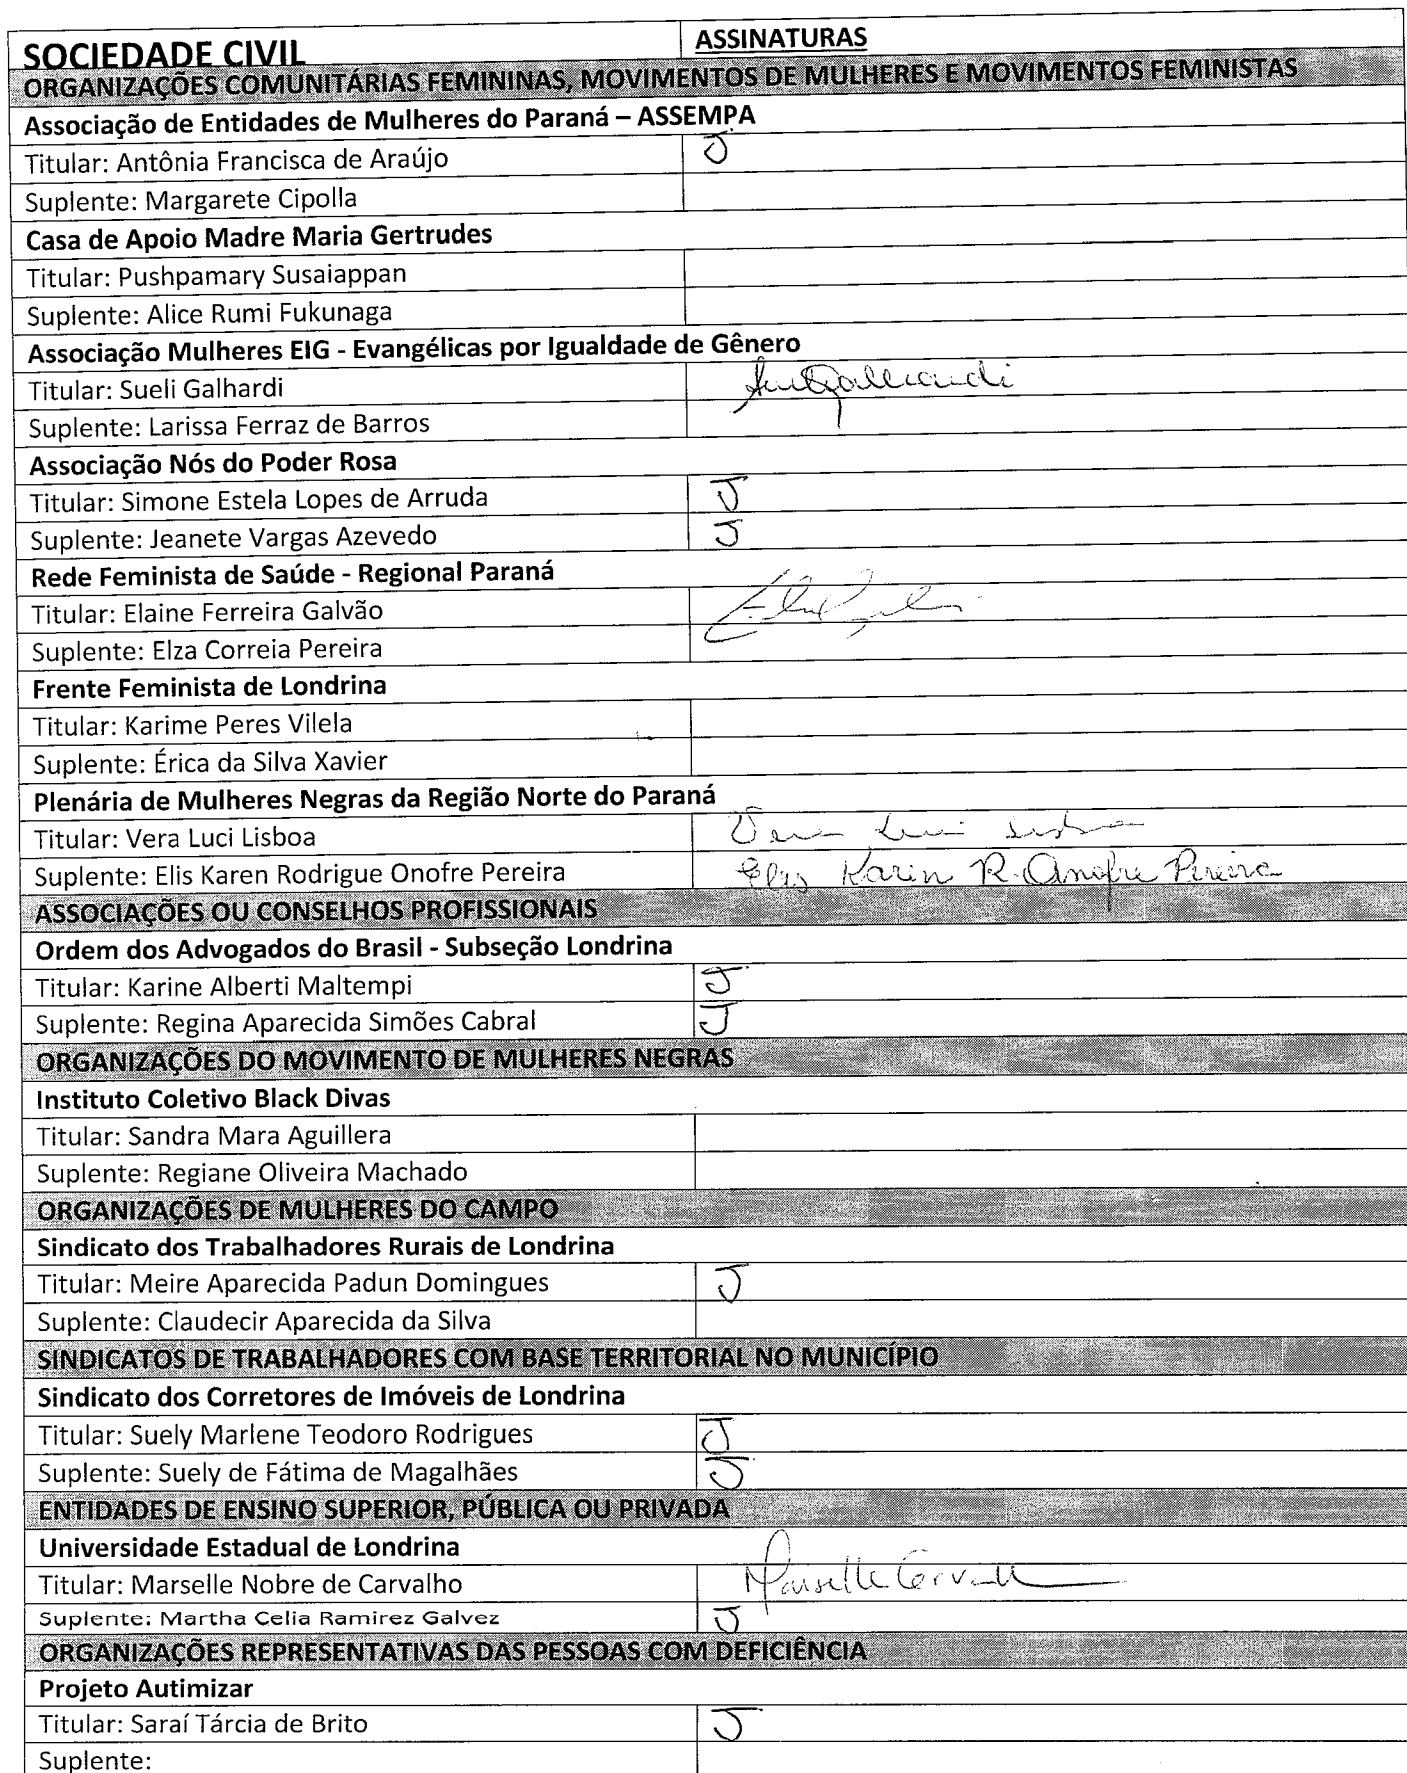 SOCIEDADE CIVIL ASSINATURAS
ORGANIZAÇÕES COMUNITÁRIAS FEMININAS, MOVIMENTOS DE MULHERES E MOVIMENTOS FEMINISTAS
Associação de Entidades de Mulheres do Paraná – ASSEMPA
Titular: Antônia Francisca de Araújo J
Suplente: Margarete Cipolla
Casa de Apoio Madre Maria Gertrudes
Titular: Pushpamary Susaiappan
Suplente: Alice Rumi Fukunaga
Associação Mulheres EIG - Evangélicas por Igualdade de Gênero
Titular: Sueli Galhardi
Suplente: Larissa Ferraz de Barros
Associação Nós do Poder Rosa
Titular: Simone Estela Lopes de Arruda J
Suplente: Jeanete Vargas Azevedo J
Rede Feminista de Saúde - Regional Paraná
Titular: Elaine Ferreira Galvão
Suplente: Elza Correia Pereira
Frente Feminista de Londrina
Titular: Karime Peres Vilela
Suplente: Érica da Silva Xavier
Plenária de Mulheres Negras da Região Norte do Paraná
Titular: Vera Luci Lisboa Vera Luci Lisboa
Suplente: Elis Karen Rodrigue Onofre Pereira Elis Karin R. Onofre Pereira
ASSOCIAÇÕES OU CONSELHOS PROFISSIONAIS
Ordem dos Advogados do Brasil - Subseção Londrina
Titular: Karine Alberti Maltempi J
Suplente: Regina Aparecida Simões Cabral J
ORGANIZAÇÕES DO MOVIMENTO DE MULHERES NEGRAS
Instituto Coletivo Black Divas
Titular: Sandra Mara Aguillera
Suplente: Regiane Oliveira Machado
ORGANIZAÇÕES DE MULHERES DO CAMPO
Sindicato dos Trabalhadores Rurais de Londrina
Titular: Meire Aparecida Padun Domingues J
Suplente: Claudecir Aparecida da Silva
SINDICATOS DE TRABALHADORES COM BASE TERRITORIAL NO MUNICÍPIO
Sindicato dos Corretores de Imóveis de Londrina
Titular: Suely Marlene Teodoro Rodrigues J
Suplente: Suely de Fátima de Magalhães J
ENTIDADES DE ENSINO SUPERIOR, PÚBLICA OU PRIVADA
Universidade Estadual de Londrina
Titular: Marselle Nobre de Carvalho Marselle Carvalho
Suplente: Martha Celia Ramirez Galvez J
ORGANIZAÇÕES REPRESENTATIVAS DAS PESSOAS COM DEFICIÊNCIA
Projeto Autimizar
Titular: Saraí Tárcia de Brito J
Suplente: